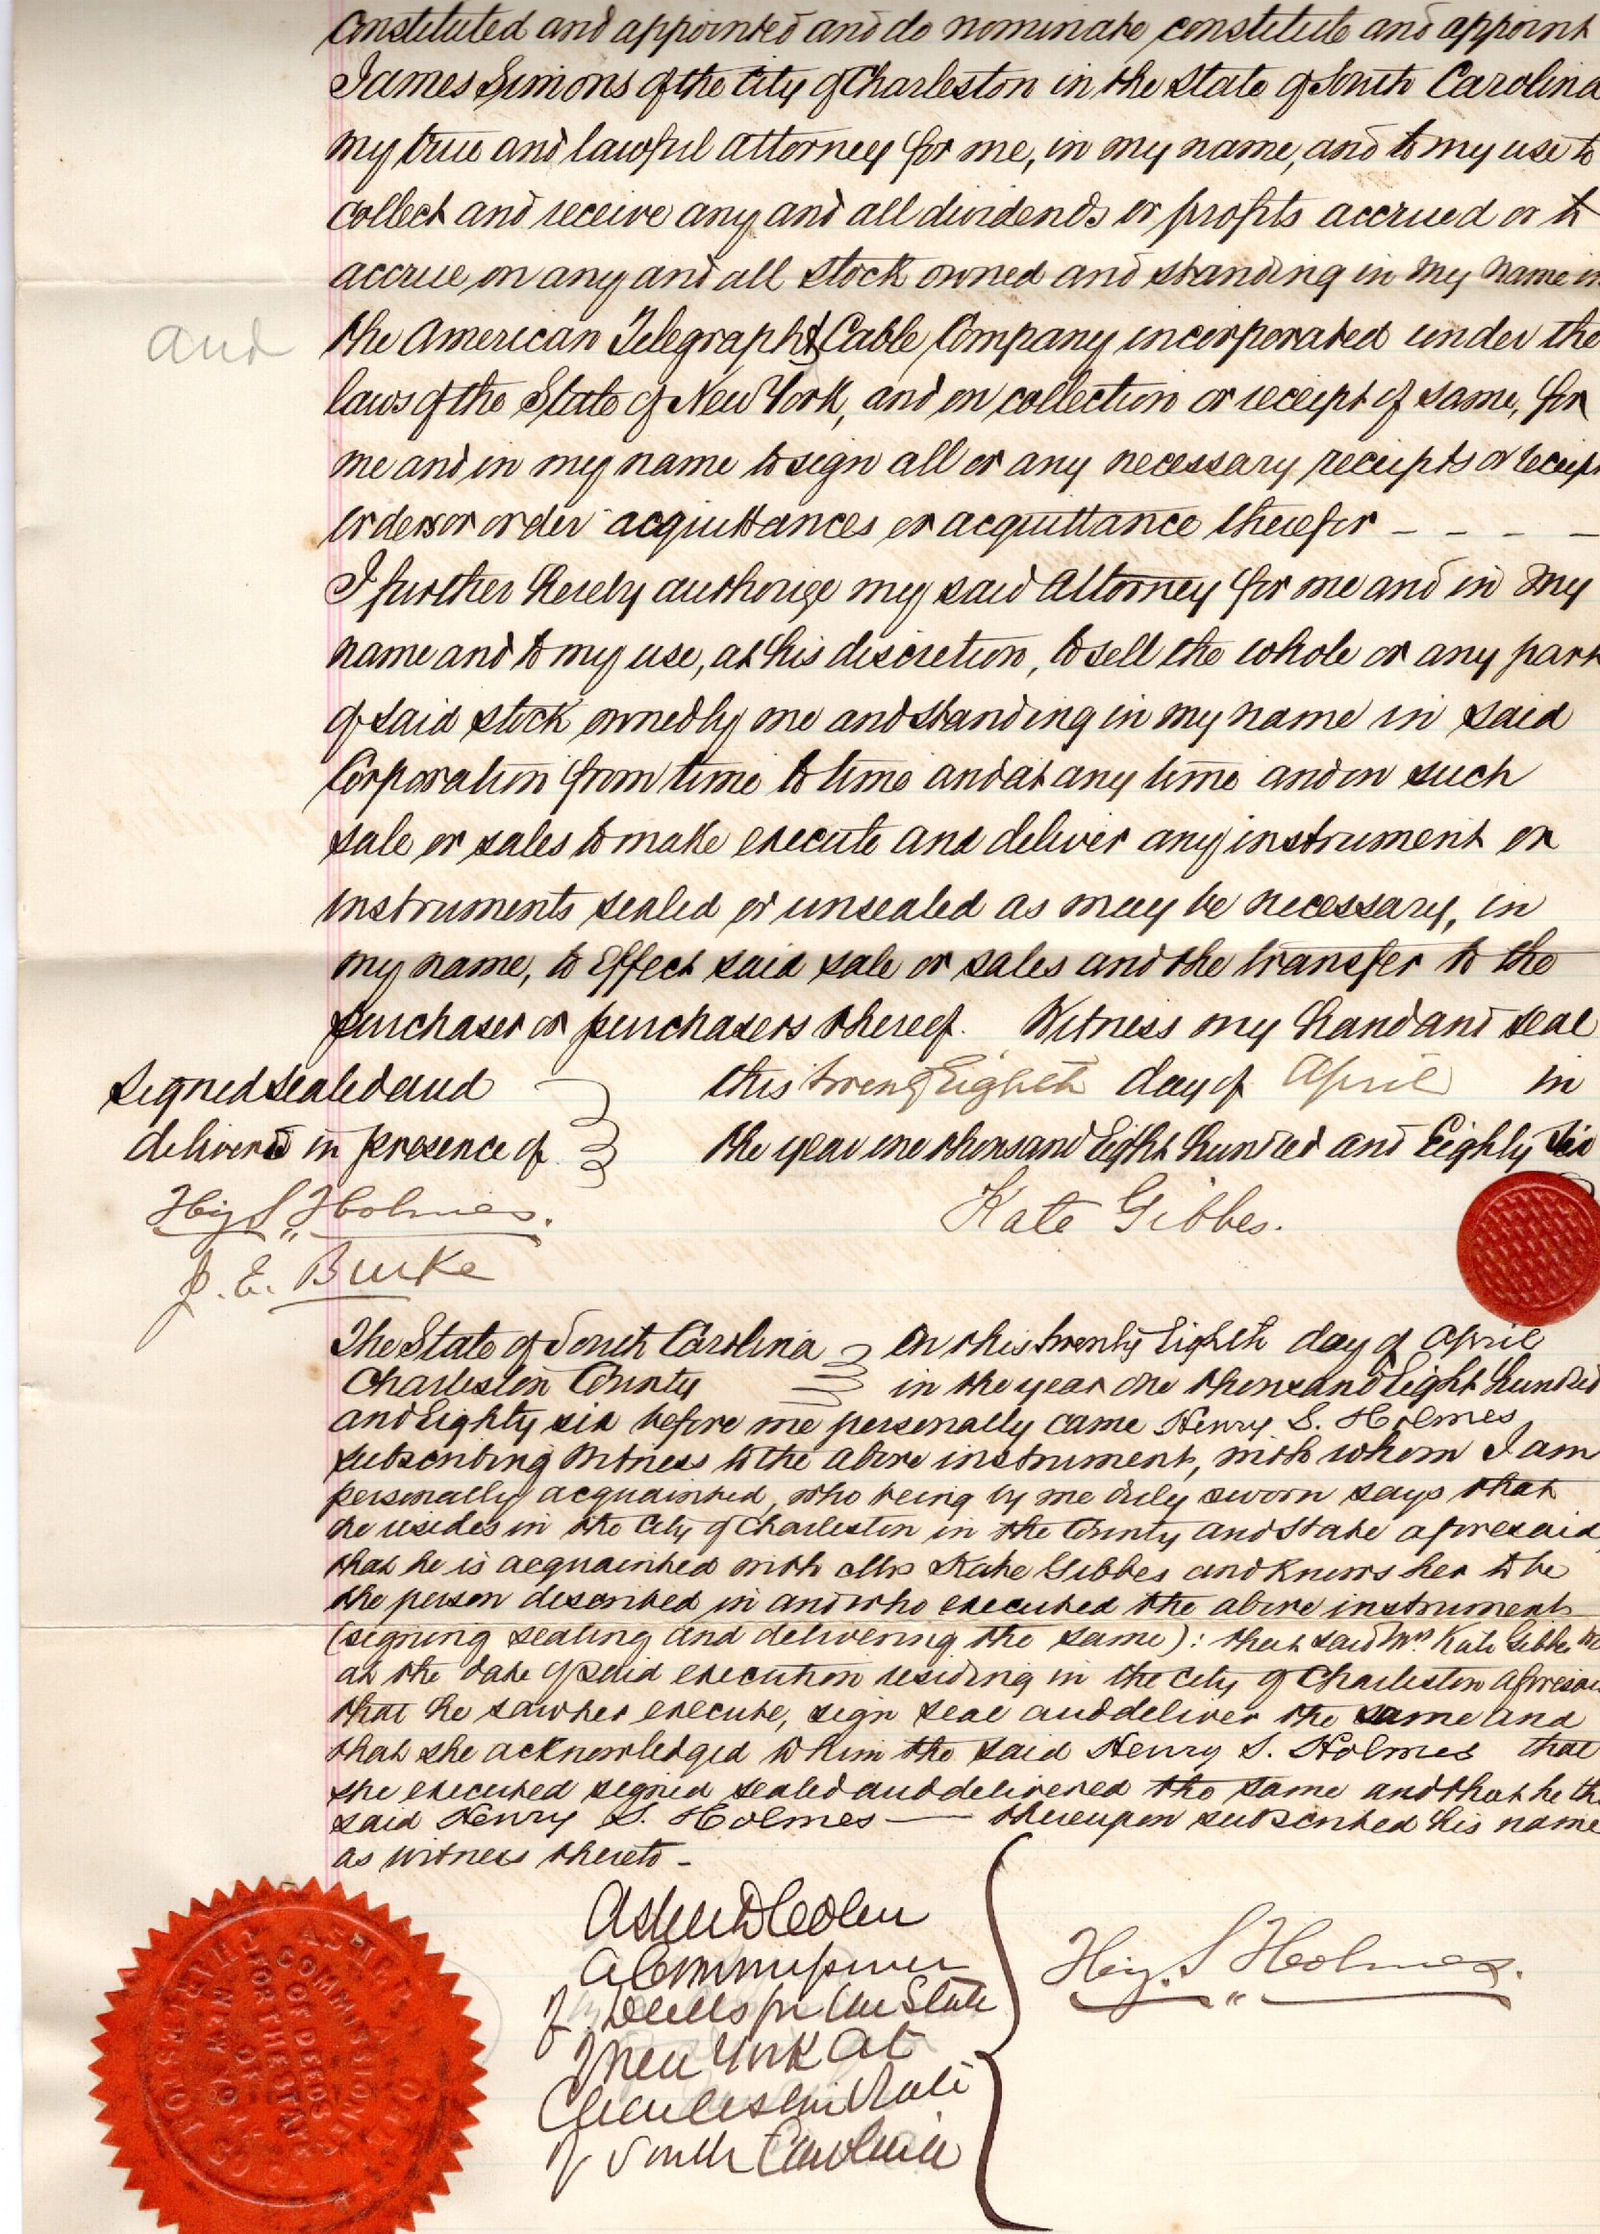 Constituted and appointed and do nominate constitute and appoint
James Simons of the City of Charleston in the State of South Carolina
my true and lawful attorney for me, in my name, and to my use to
collect and receive any and all dividends or profits accrued or to
accrue on any and all stock owned and standing in my name in
and
the American Telegraph & Cable Company incorporated under the
laws of the State of New York, and on collection or receipt of same, for
me and in my name to sign all or any necessary receipts or receipt
orders or order acquittances or acquittance therefor - - - -
I further hereby authorize my said Attorney for me and in my
name and to my use, at his discretion, to sell the whole or any part
of said stock owned by me and standing in my name in said
Corporation from time to time and at any time and on such
sale or sales to make execute and deliver any instrument or
instruments sealed or unsealed as may be necessary, in
my name, to effect said sale or sales and the transfer to the
purchaser or purchasers thereof. Witness my hand and seal
Signed sealed and this twenty Eighth day of April in
delivered in presence of the year one thousand Eight hundred and Eighty Six
Hy. S. Holmes. Kate Gibbes.
J. E. Burke
The State of South Carolina On this twenty Eighth day of April
Charleston County in the year one thousand Eight hundred
and Eighty six before me personally came Henry S. Holmes
subscribing Witness to the above instrument, with whom I am
personally acquainted, who being by me duly sworn says that
he resides in the City of Charleston in the County and State aforesaid,
that he is acquainted with Mrs Kate Gibbes and knows her to be
the person described in and who executed the above instrument
(signing sealing and delivering the same): that said Mrs Kate Gibbes
at the date of said execution residing in the City of Charleston aforesaid
that he saw her execute, sign seal and deliver the same and
that she acknowledged to him the said Henry S. Holmes that
she executed signed sealed and delivered the same and that he the
said Henry S. Holmes — thereupon subscribed his name
as witness thereto -
Asher D Cohen
A Commissioner
of Deeds for the State
of New York at
Charleston State
of South Carolina
Hy. S Holmes.
COMMISSIONER
OF DEEDS
FOR THE STATE
OF
NEW YORK